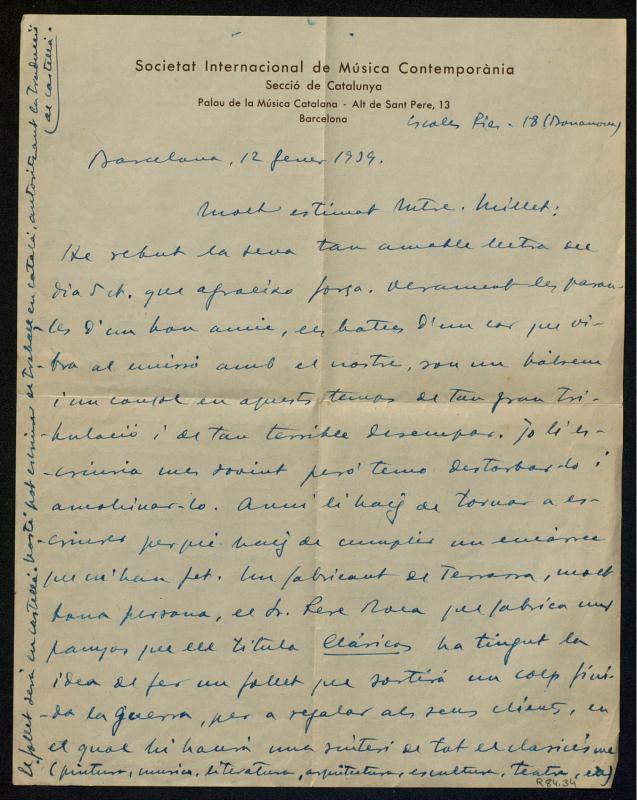 Societat Internacional de Música Contemporània
Secció de Catalunya
Palau de la Música Catalana - Alt de Sant Pere, 13
Barcelona
Escoles Pies - 18 (Bonanova)
Barcelona, 12 gener 1939.
Molt estimat Mtre. Millet:
He rebut la seva tan amable lletra del
dia 5 ct. que agraeixo força. Verament les parau-
les d'un bon amic, els batecs d'un cor que vi-
bra al uníssó amb el nostre, son un bàlsem
i un consol en aquests temps de tan gran tri-
bulació i de tan terrible desempar. Jo li es-
criuria mes sovint peró temo destorbar-lo i
amohinar-lo. Avui li haig de tornar a es-
criure perquè haig de cumplir un encàrrec
que m'han fet. Un fabricant de Terrassa, molt
bona persona, el Sr. Pere Roca que fabrica uns
panyos que ell titula Clásicos ha tingut la
idea de fer un follet que sortirà un colp fini-
da la guerra, per a regalar als seus clients, en
el qual hi haurà una síntesi de tot el clasicisme
(pintura, musica, literatura, arquitectura, escultura, teatre, etc)
R 84.34
El follet serà en castellà. Vostè pot escriure el treball en català, autoritzant la traducció
al castellà.